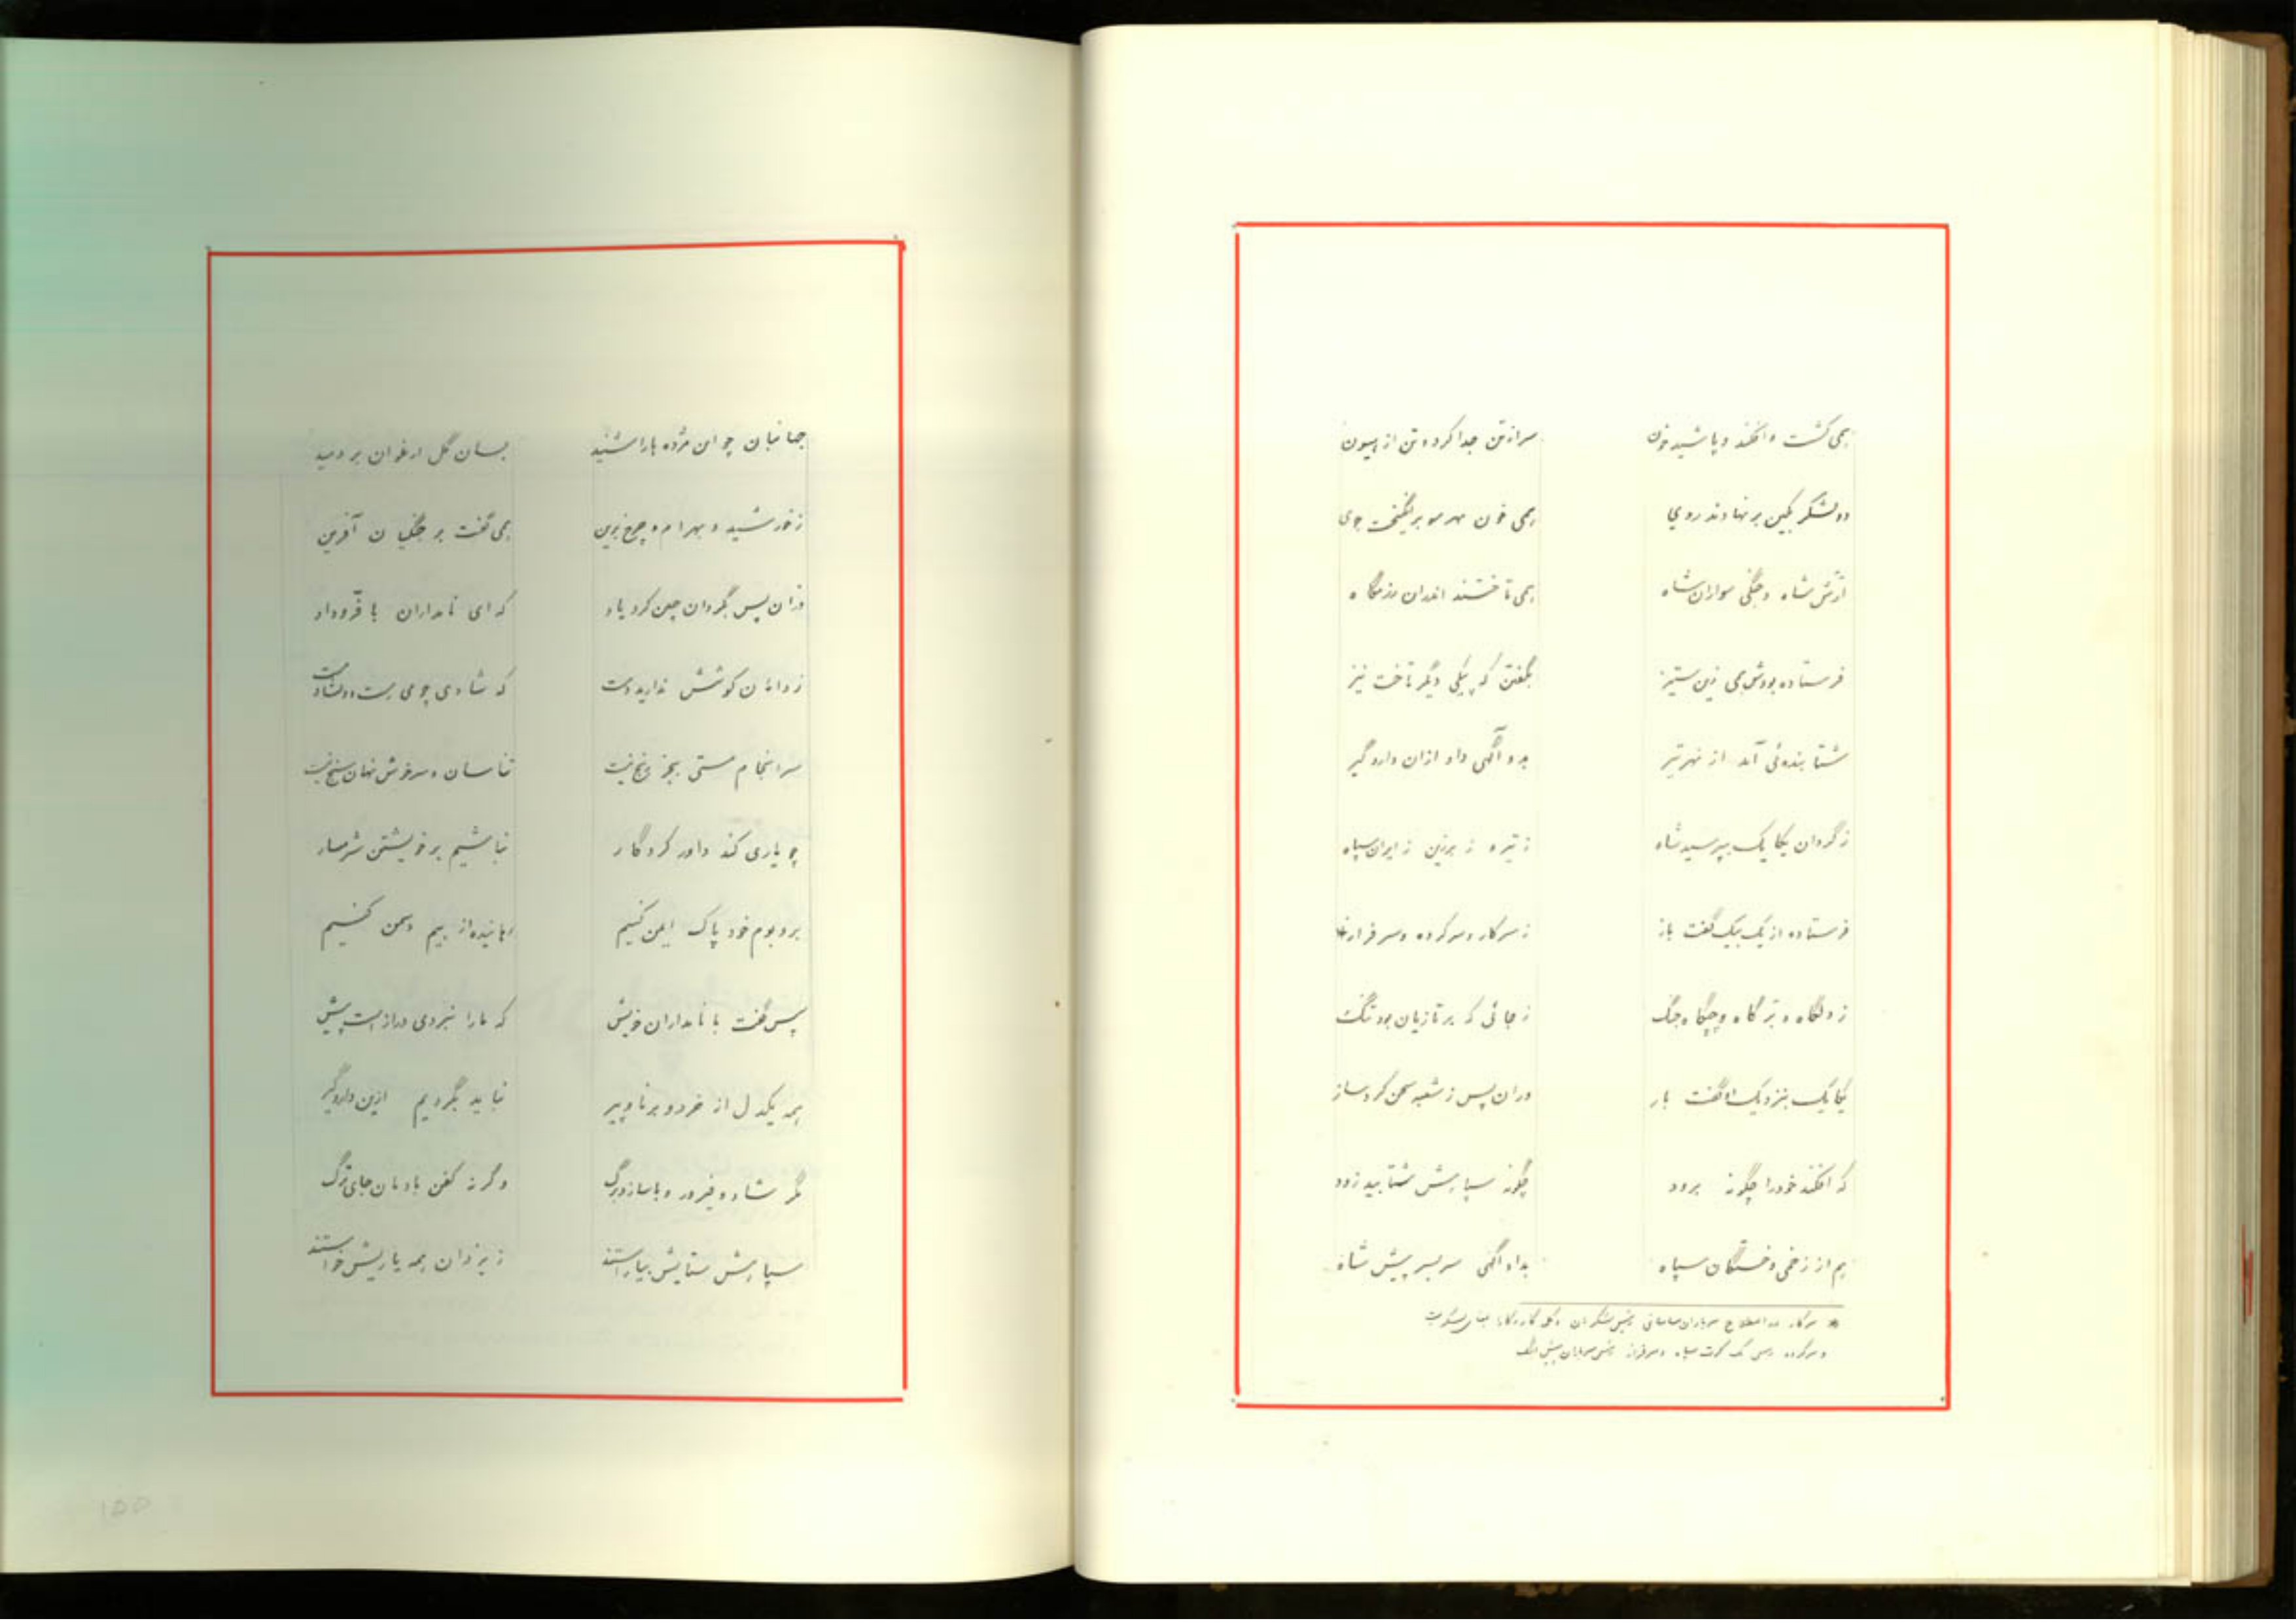 همی کشت و افکند و پاشید خون سر از تن جدا کرد و تن از هیون
دو لشکر بکین بر نهادند روی همی خون بهر سو برانگیخت جوی
ارتش شاه و جنگی سواران شاه همی تاختند اندران رزمگاه
فرستاده بودش همی زین ستیز بگفتن که پیکی دگر تاخت نیز
شتابنده‌ئی آمد از نهر تیر بدو آگهی داد ازان دارو گیر
ز گردان یکایک بپرسید شاه ز تیره ز برزین ز ایران سپاه
فرستاده از یک بیک گفت باز ز سرکار و سرکرده و سرفراز*
ز جائی که بر تازیان بود تنگ
یکایک بنزدیک او گفت باز وزان پس ز شعبه سخن کرد ساز
که افکند خود را چگونه برود چگونه سپاهش شتابید زود
هم از زخمی و خستگان سپاه بداد آگهی سربسر پیش شاه
* سرکار در اصطلاح سربازان ساسانی
و سرکرده و سرفراز
جهانبان چو این مژده‌ها را شنید بسان گل ارغوان بر دمید
ز خورشید و بهرام و چرخ برین همی گفت بر جنگیان آفرین
وزان پس بگردان چنین کرد یاد که ای نامداران با فرّ و داد
ز دامان کوشش ندارید دست که شادی چو می هست و دلشاد مست
سرانجام مستی بجز رنج نیست تناسان و سرخوش نهان سنج نیست
چو یاری کند داور کردگار نباشیم بر خویشتن شرمسار
بر و بوم خود پاک ایمن کنیم رهانیده از بیم دشمن کنیم
پس گفت با نامداران خویش که ما را نبردی درازست پیش
همه یکدل از خرد و برنا و پیر نباید بگردیم ازین دارو گیر
مگر شاد و فیروز و با ساز و برگ وگرنه کفن بادمان جای ترگ
سپاهش ستایش بیاراستند ز یزدان همه یاریش خواستند